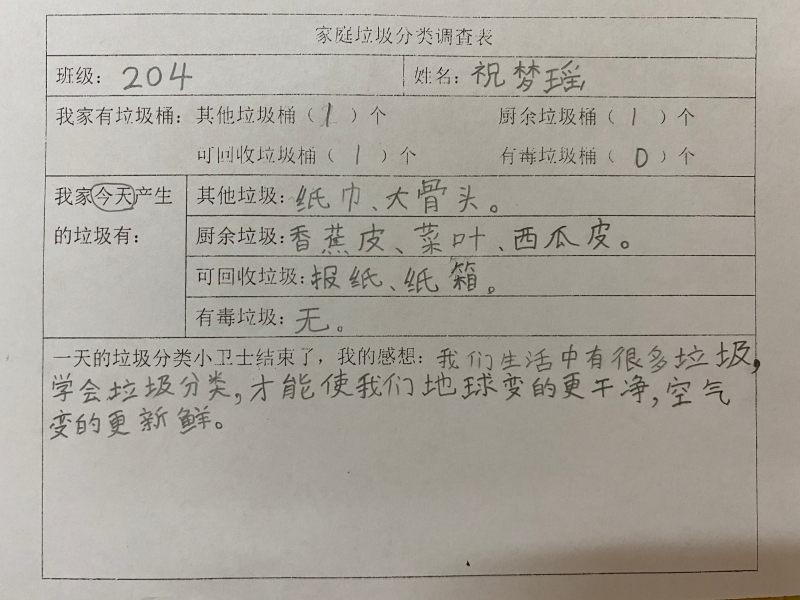 家庭垃圾分类调查表
班级: 204 姓名: 祝梦瑶
我家有垃圾桶: 其他垃圾桶（ 1 ）个 厨余垃圾桶（ 1 ）个
可回收垃圾桶（ 1 ）个 有毒垃圾桶（ 0 ）个
我家今天产生 其他垃圾: 纸巾、大骨头。
的垃圾有: 厨余垃圾: 香蕉皮、菜叶、西瓜皮。
可回收垃圾: 报纸、纸箱。
有毒垃圾: 无。
一天的垃圾分类小卫士结束了，我的感想: 我们生活中有很多垃圾,
学会垃圾分类,才能使我们地球变的更干净,空气
变的更新鲜。